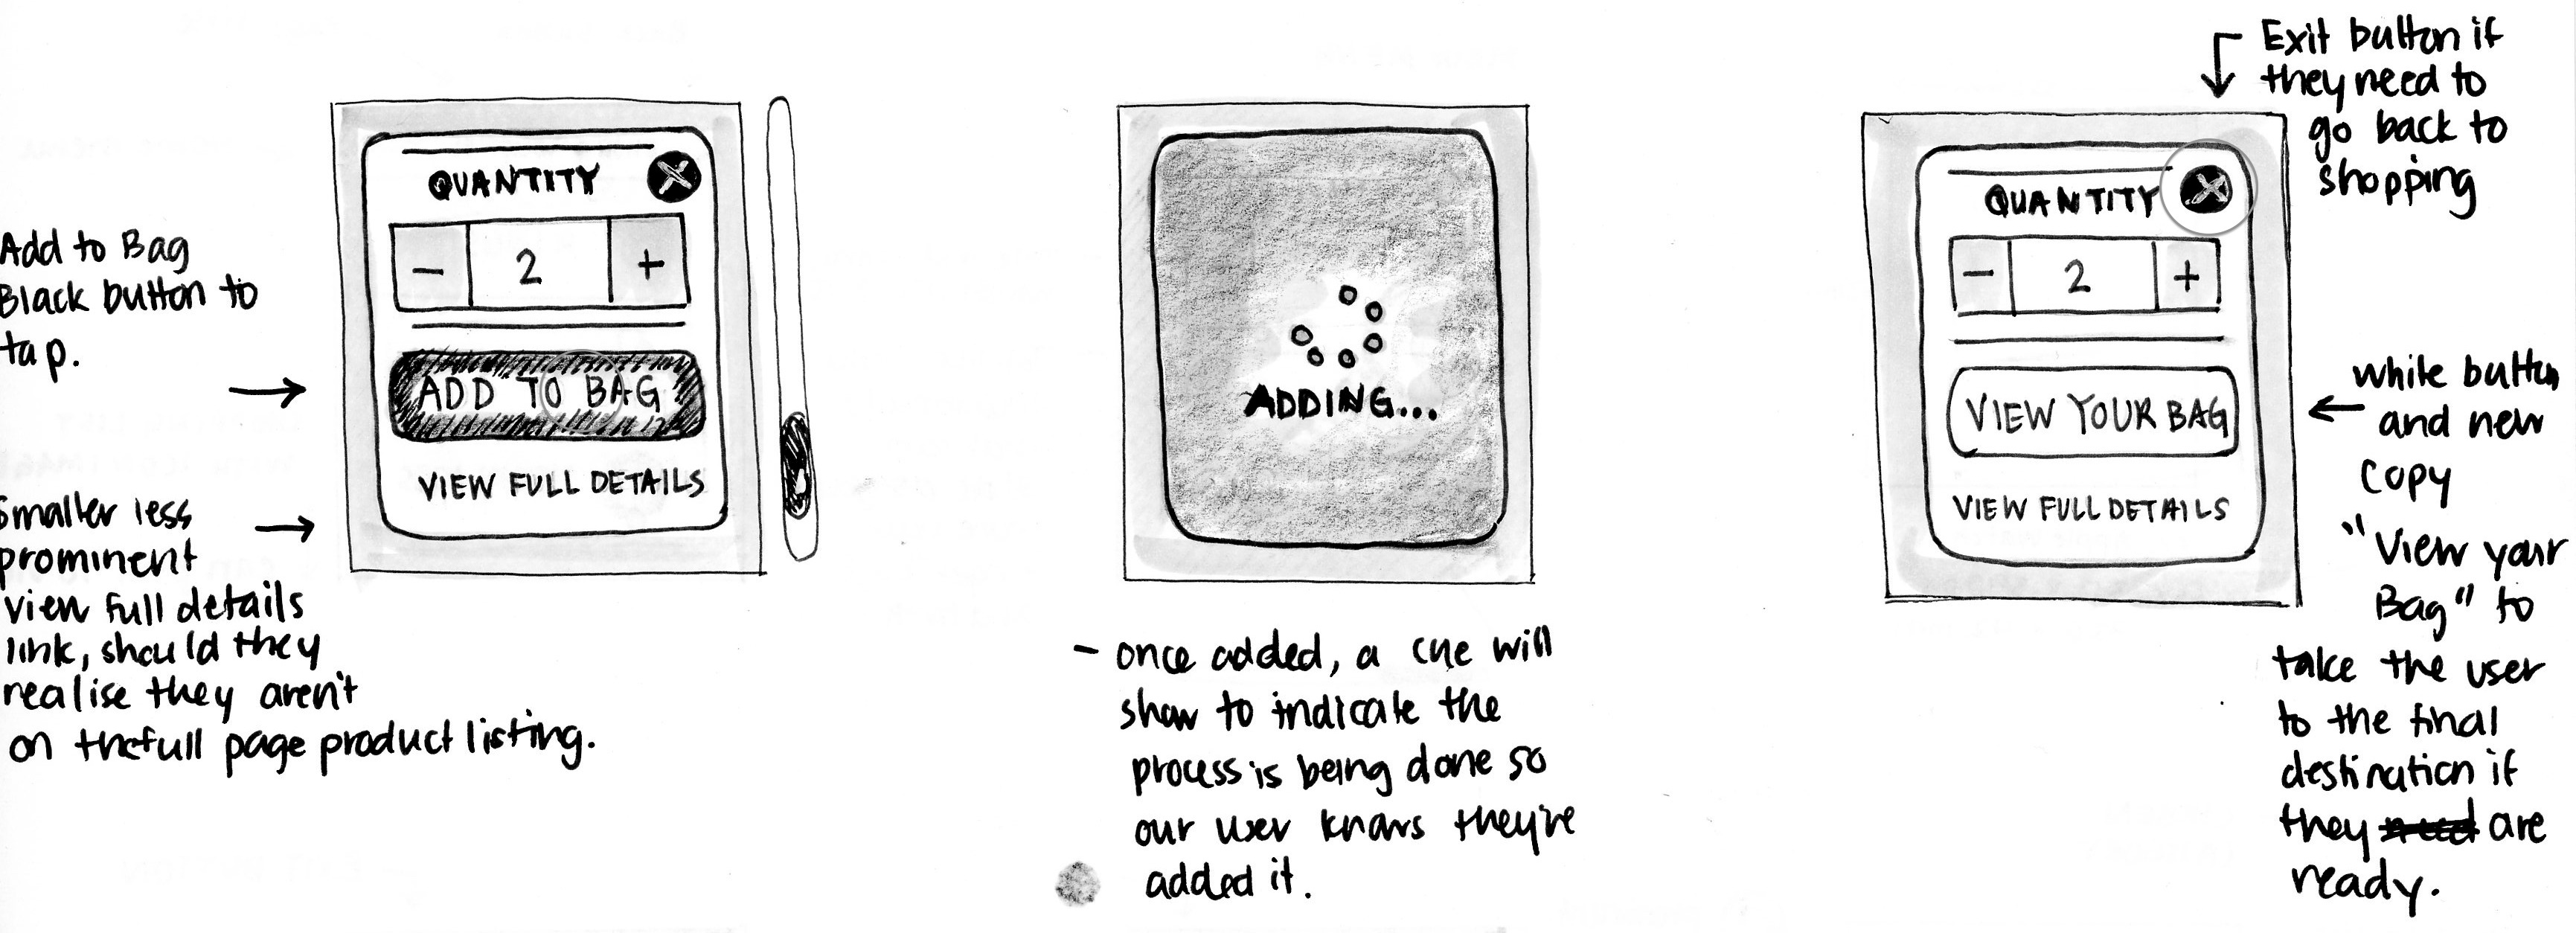 Add to Bag
Black button to
tap.
Smaller less
prominent
view full details
link, should they
realise they aren't
on the full page product listing.
QUANTITY
- 2 +
ADD TO BAG
VIEW FULL DETAILS
ADDING...
- once added, a cue will
show to indicate the
process is being done so
our user knows they're
added it.
Exit button if
they need to
go back to
shopping
QUANTITY
- 2 +
VIEW YOUR BAG
VIEW FULL DETAILS
white button
and new
copy
"View your
Bag" to
take the user
to the final
destination if
they need are
ready.